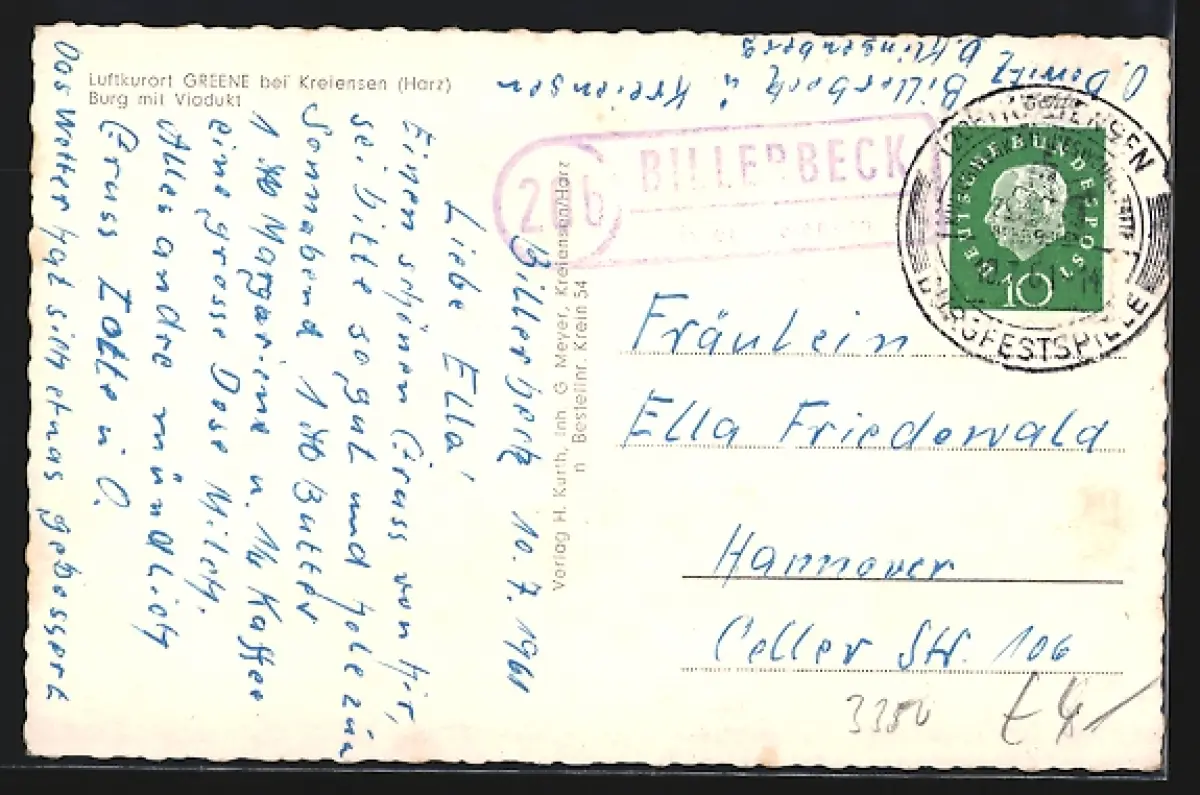 Luftkurort GREENE bei Kreiensen (Harz)
Burg mit Viadukt
Billerbeck ü Kreiensen
Billerbeck 10.7.1961
Liebe Ella!
Einen schönen Gruss von hir,
sei bitte so gut und hole zum
Sonnabend 1 Butter
1 Margarine u. 1/4 Kaffee
eine grosse Dose Milch.
Alles andre mündlich
Gruss Lotte u O.
Das Wetter hat sich etwas gebessert
Verlag H. Kurth, Inh G Meyer, Kreiensen/Harz
n Bestellnr. Krein 54
20b
BILLERBECK
DEUTSCHE BUNDESPOST
10
DOMFESTSPIELE
Fräulein
Ella Friedewald
Hannover
Celler Str. 106
3380